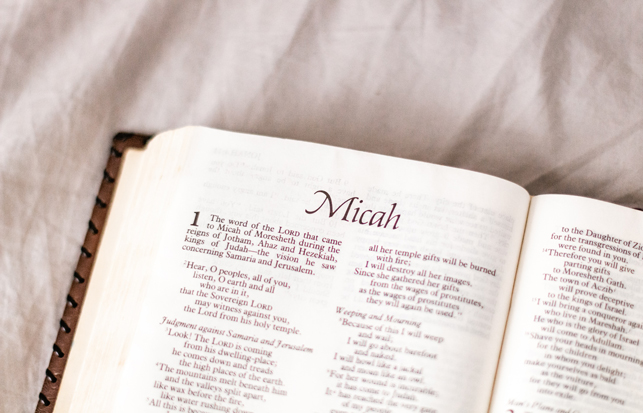 Micah
1 The word of the LORD that came
to Micah of Moresheth during the
reigns of Jotham, Ahaz and Hezekiah,
kings of Judah—the vision he saw
concerning Samaria and Jerusalem.
2Hear, O peoples, all of you,
listen, O earth and all
who are in it,
that the Sovereign LORD
may witness against you,
the Lord from his holy temple.
Judgment against Samaria and Jerusalem
3Look! The LORD is coming
from his dwelling place;
he comes down and treads
the high places of the earth.
4The mountains melt beneath him
and the valleys split apart,
like wax before the fire,
like water rushing down
5All this is because
all her temple gifts will be burned
with fire;
I will destroy all her images.
Since she gathered her gifts
from the wages of prostitutes,
as the wages of prostitutes
they will again be used."
Weeping and Mourning
8Because of this I will weep
and wail;
I will go about barefoot
and naked.
I will howl like a jackal
and moan like an owl.
9For her wound is incurable;
it has come to Judah.
It has reached the very
of my people
to the Daughter of
for the transgressions of
were found in you.
parting gifts
to Moresheth Gath.
The town of Aczib
will prove deceptive
to the kings of Israel.
I will bring a conqueror
who live in Mareshah.
He who is the glory of Israel
will come to Adullam.
Shave your heads in mourning
for the children
in whom you delight;
make yourselves as bald
as the vulture,
for they will go from you